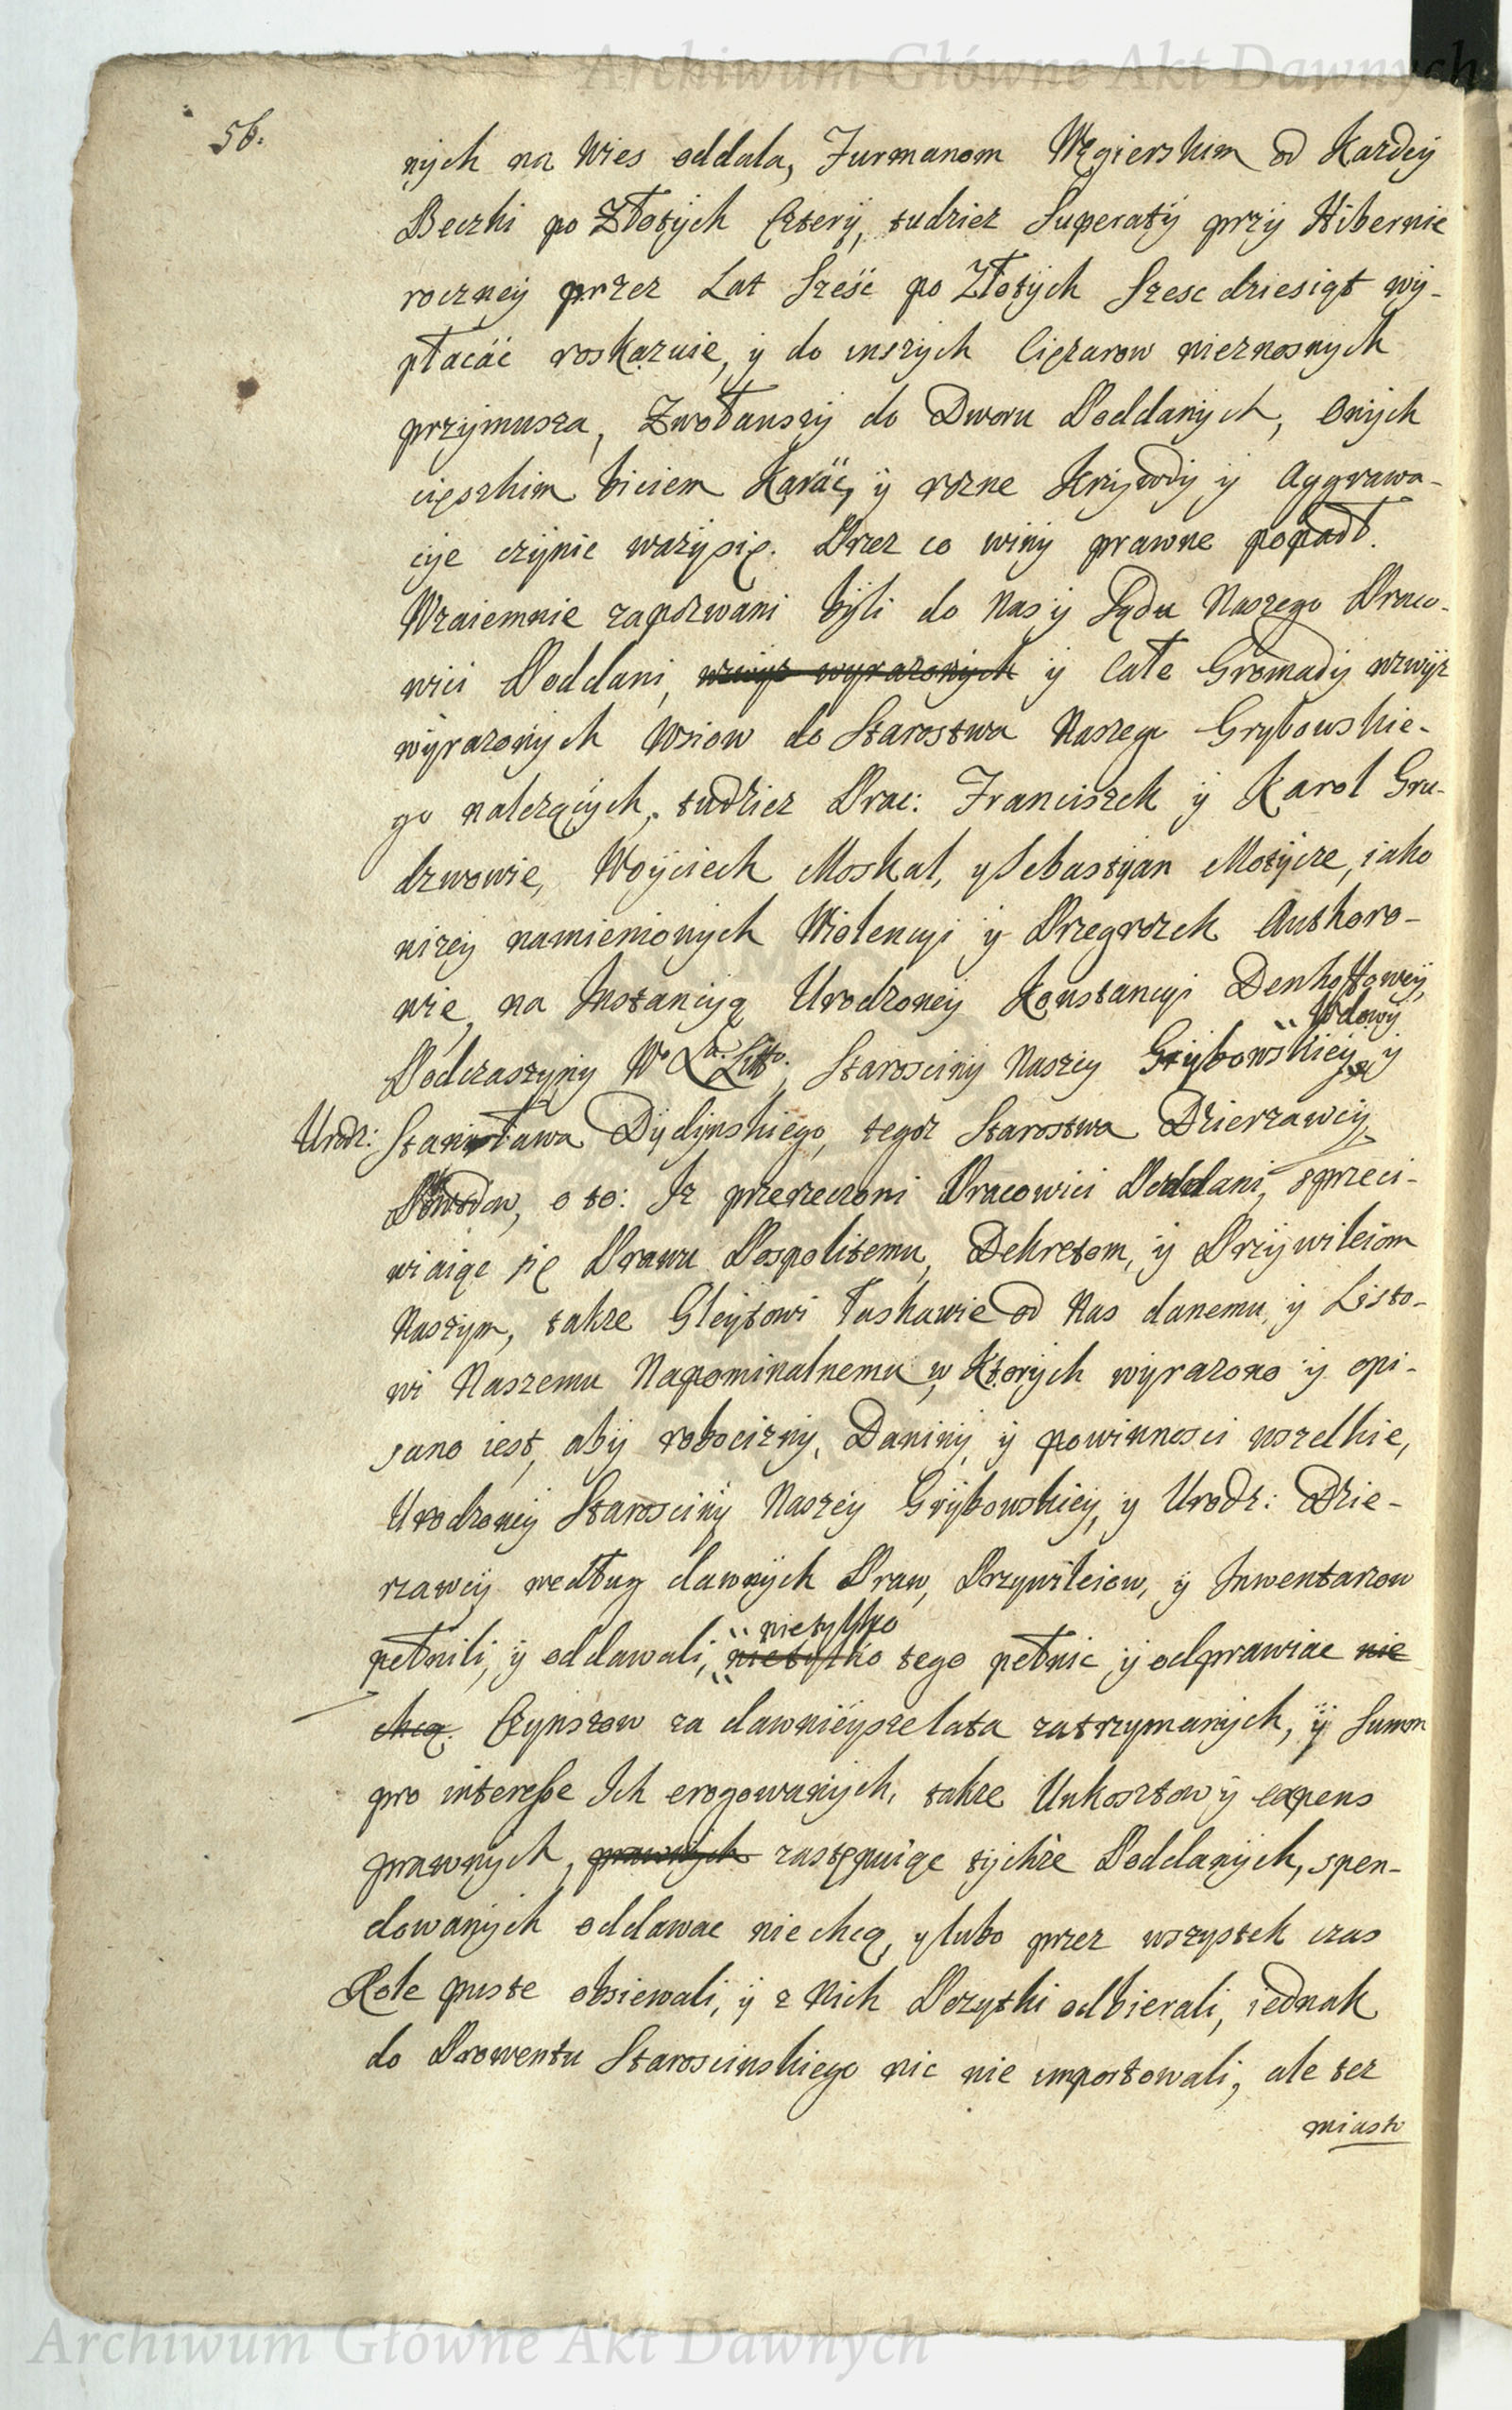 Archiwum Główne Akt Dawnych
56.
nych na Wies oddala, Furmanom Węgierskim od Kazdey
Beczki po Złotych Cztery, tudziez Superaty przy Hibernie
roczney przez Lat Sześć po Złotych Szesc dziesiąt wy-
płacać roskazuie, y do inszych Ciężarow nieznosnych
przymusza, Zwoławszy do Dworu Poddanych, Onych
cięszkim biciem Karać, y rozne Krzywdy y Aggrawa-
cye czynic ważysię. Przez co winy prawne popadł.
Wzaiemnie zapozwani byli do Nas y Sądu Naszego Praco-
wici Poddani, wzwyz wyrazonych y Całe Gromady wzwyz
wyrazonych Wsiow do Starostwa Naszego Grybowskie-
go nalezących, tudziez Prac: Franciszek y Karol Gru-
dzwowie, Woyciech Moskal, y Sebastyan Motycze, iako
nizey namienionych Wiolencyi y Pregrozek Authoro-
wie, na Instancyą Urodzoney Konstancyi Denhoffowey,
Wdowy
Podczaszyny W° Xa. Litt°. Starosciny Naszey Grybowskiey, y
Urodz: Stanisława Dydynskiego, tegoz Starostwa Dzierzawcy,
Powodow, o to: Iz przerzeczoni Pracowici Poddani, sprzeci-
wiaiąc się Prawu Pospolitemu, Dekretom, y Przywileiom
Naszym, takze Gleytowi łaskawie od Nas danemu, y Listo-
wi Naszemu Napominalnemu, w Ktorych wyrazono y opi-
sano iest, aby robocizny, Daniny, y powinnosci wszelkie,
Urodzoney Starosciny Naszey Grybowskiey, y Urodz: Dzie-
rzawcy według dawnych Praw, Przywileiow, y Inwentarzow
nietylko
pełnili, y oddawali, nietylko tego pełnic y odprawiac nie
chcą. Czynszow za dawnieysze lata zatrzymanych, y Summ
pro interesse Ich erogowanych, takze Unkosztow y expens
prawnych, prawnych zastępuiąc tychże Poddanych, spen-
dowanych oddawac nie chcą, y lubo przez wszystek czas
Role puste obsiewali, y z Nich Pozytki odbierali, iednak
do Prowentu Staroscinskiego nic nie importowali, ale tez
miasto
Archiwum Główne Akt Dawnych